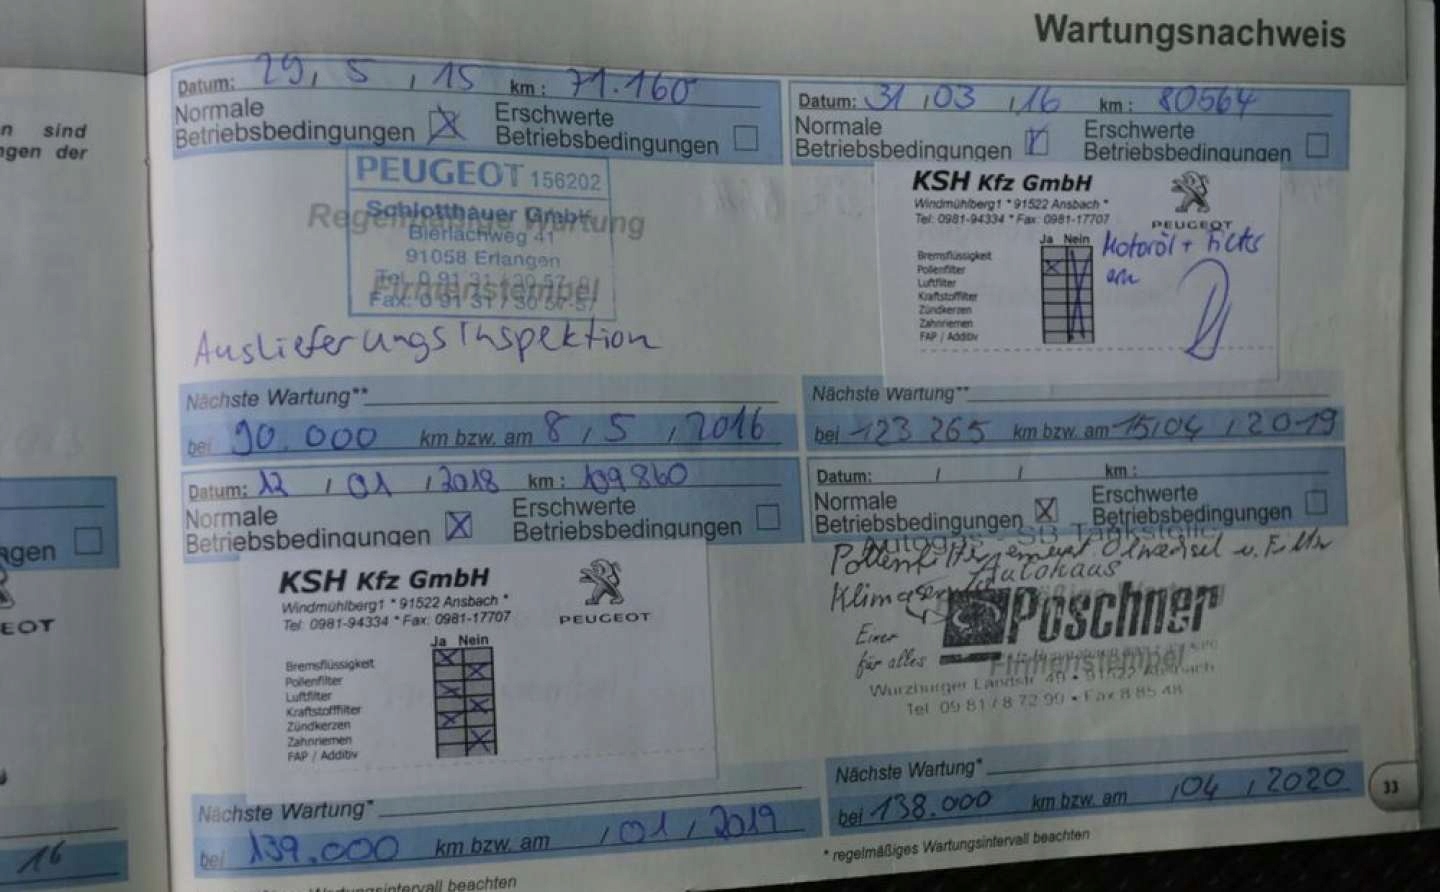 Wartungsnachweis
n sind
ngen der
Datum: 29, 5, 15 km: 71.160
Normale
Betriebsbedingungen
Erschwerte
Betriebsbedingungen
PEUGEOT 156202
Schlotthauer GmbH
Regelmäßige Wartung
Bierlachweg 41
91058 Erlangen
Firmenstempel
Auslieferungsinspektion
Nächste Wartung**
bei 90.000 km bzw. am 8, 5, 2016
Datum: 31, 03, 16 km: 80564
Normale
Betriebsbedingungen
Erschwerte
Betriebsbedingungen
KSH Kfz GmbH
Windmühlberg1 * 91522 Ansbach *
Tel: 0981-94334 * Fax: 0981-17707
PEUGEOT
Ja Nein
Motoröl +
Bremsflüssigkeit
Pollenfilter
Luftfilter
Kraftstoffilter
Zündkerzen
Zahnriemen
FAP / Additiv
Nächste Wartung**
bei 123 265 km bzw. am 15,04, 2019
agen
EOT
16
Datum: 12, 01, 2018 km: 109860
Normale
Betriebsbedingungen
Erschwerte
Betriebsbedingungen
KSH Kfz GmbH
Windmühlberg1 * 91522 Ansbach *
Tel: 0981-94334 * Fax: 0981-17707
PEUGEOT
Ja Nein
Bremsflüssigkeit
Pollenfilter
Luftfilter
Kraftstofffilter
Zündkerzen
Zahnriemen
FAP / Additiv
Nächste Wartung*
bei 139.000 km bzw. am , 01, 2019
Datum: / / km:
Normale
Betriebsbedingungen
Erschwerte
Betriebsbedingungen
Autogas - SB Tankstelle
Pollenfilter erneuert. Ölwechsel u. Filter
Autohaus
Poschner
Einer
für alles
Firmenstempel
Würzburger Landstr. 49 • 91522 Ansbach
Tel. 09 81 / 8 72 99 • Fax 8 85 48
Nächste Wartung*
bei 138.000 km bzw. am , 04, 2020
33
* regelmäßiges Wartungsintervall beachten
Wartungsintervall beachten